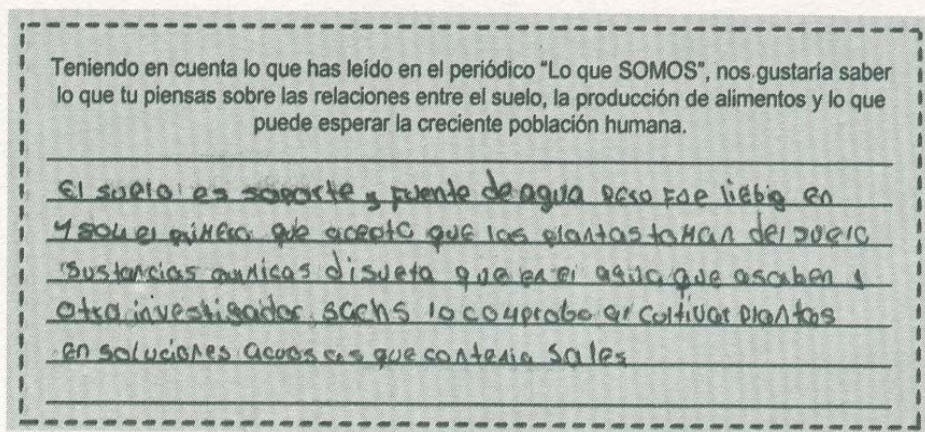 Teniendo en cuenta lo que has leído en el periódico "Lo que SOMOS", nos gustaría saber
lo que tu piensas sobre las relaciones entre el suelo, la producción de alimentos y lo que
puede esperar la creciente población humana.
El suelo es soporte y fuente de agua pero fue liebig en
el primero que acepto que las plantas toman del suelo
sustancias disueta que en el agua que
otro investigador sachs lo comprobo al cultivar plantas
en soluciones acuosas que contenia sales